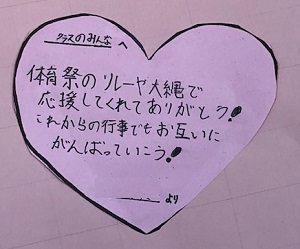 クラスのみんなへ
体育祭のリレーや大縄で
応援してくれてありがとう!
これからの行事でもお互いに
がんばっていこう!
より